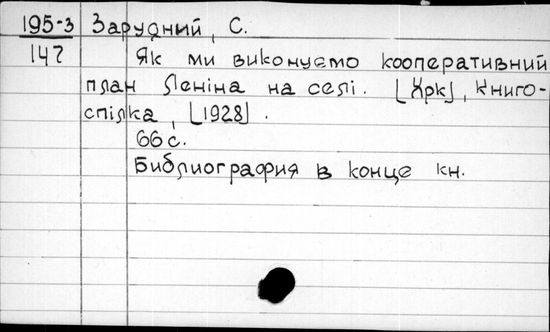 195-3 Зарудний, С.
147 Як ми виконуємо кооперативний
план Леніна на селі. [Хрк], Книго-
спілка, [1928].
66 с.
Библиография в конце кн.